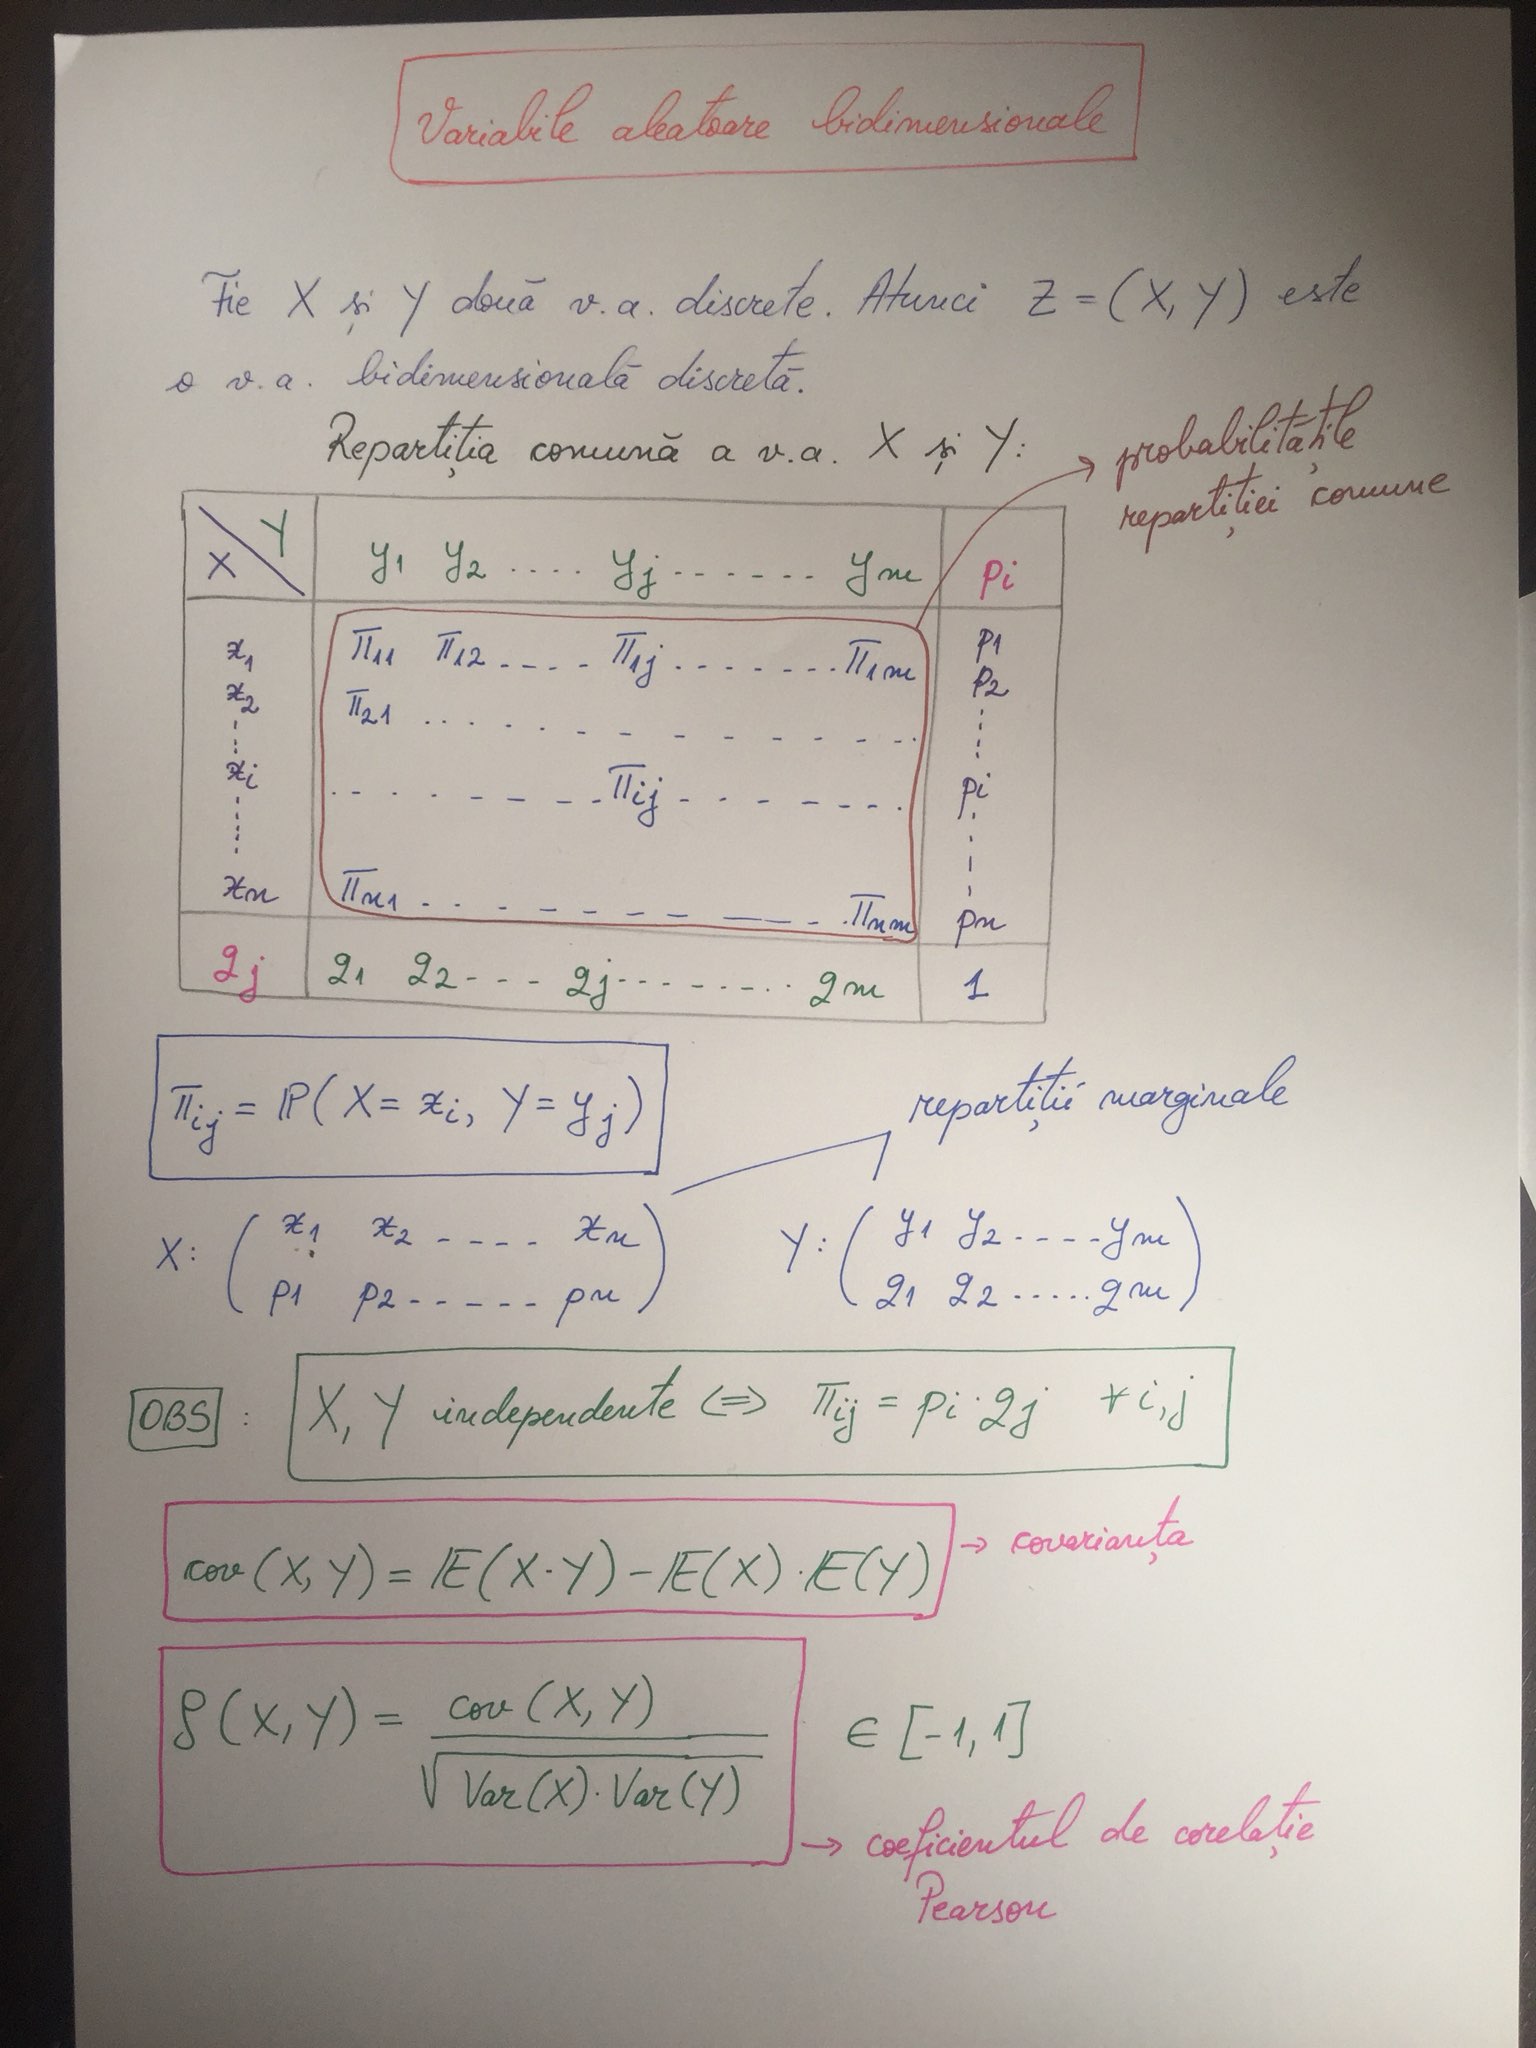 Variabile aleatoare bidimensionale
Fie X și Y două v.a. discrete. Atunci Z = (X, Y) este
o v.a. bidimensională discretă.
Repartiția comună a v.a. X și Y:
→ probabilitățile
repartiției comune
X \ Y y1 y2 .... yj ....... ym pi
x1 π11 π12 .... π1j ........ π1m p1
x2 π21 ............ p2
xi ....... πij ....... pi
xn πn1 ............ πnm pn
qj q1 q2 .... qj ......... qm 1
πij = P(X = xi, Y = yj)
repartiții marginale
X: ( x1 x2 .... xn ) Y: ( y1 y2 ..... ym )
( p1 p2 ...... pn ) ( q1 q2 ..... qm )
OBS : X, Y independente <=> πij = pi · qj ∀ i, j
cov(X, Y) = E(X·Y) − E(X)·E(Y) → covarianța
ρ(X, Y) = cov(X, Y) / √Var(X)·Var(Y) ∈ [-1, 1]
→ coeficientul de corelație
Pearson